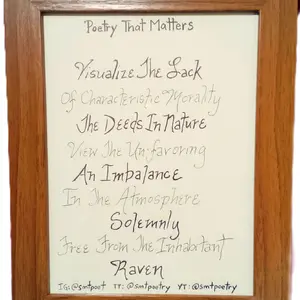 Poetry That Matters
Visualize The Lack
Of Characteristic Morality
The Deeds In Nature
View The Un-favoring
An Imbalance
In The Atmosphere
Solemnly
Free From The Inhabitant
Raven
IG:@smtpoet TT:@smtpoetry YT:@smtpoetry